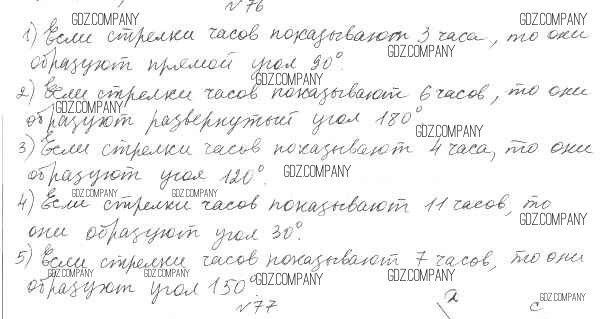 №76
GDZ.COMPANY GDZ.COMPANY
1) Если стрелки часов показывают 3 часа, то они
GDZ.COMPANY
образуют прямой угол 90°.
GDZ.COMPANY
2) Если стрелки часов показывают 6 часов, то они
GDZ.COMPANY
образуют развернутый угол 180°
GDZ.COMPANY
3) Если стрелки часов показывают 4 часа, то они
образуют угол 120°. GDZ.COMPANY
GDZ.COMPANY GDZ.COMPANY
4) Если стрелки часов показывают 11 часов, то
GDZ.COMPANY
они образуют угол 30°.
5) Если стрелки часов показывают 7 часов, то они
GDZ.COMPANY GDZ.COMPANY GDZ.COMPANY GDZ.COMPANY
образуют угол 150°
№77 a c GDZ.COMPANY